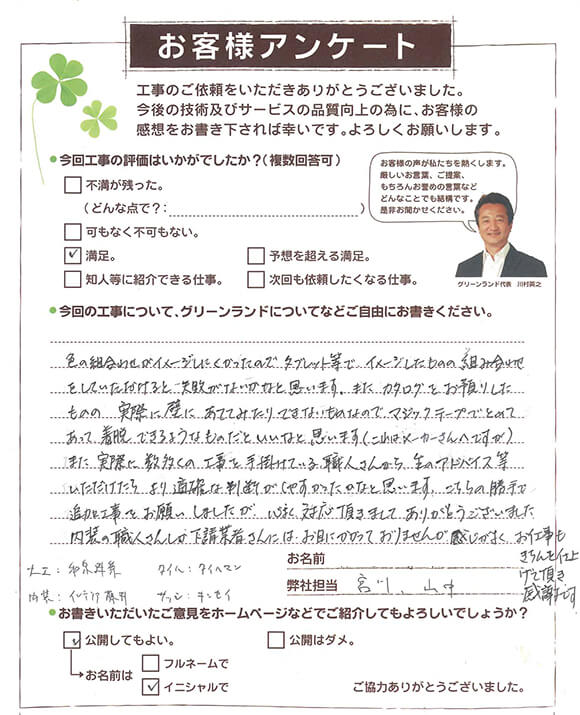 お客様アンケート
工事のご依頼をいただきありがとうございました。
今後の技術及びサービスの品質向上の為に、お客様の
感想をお書き下されば幸いです。よろしくお願いします。
●今回工事の評価はいかがでしたか？（複数回答可）
□不満が残った。
（どんな点で？：　）
□可もなく不可もない。
☑満足。 □予想を超える満足。
□知人等に紹介できる仕事。 □次回も依頼したくなる仕事。
お客様の声が私たちを熱くします。
厳しいお言葉、ご提案、
もちろんお誉めの言葉など
どんなことでも結構です。
是非お聞かせください。
グリーンランド代表 川村英之
●今回の工事について、グリーンランドについてなどご自由にお書きください。
色の組合わせがイメージしにくかったので タブレット等で イメージしたものの 組み合わせ
をしていただけると 失敗がないかなと思います。また カタログを お預りした
ものの 実際に 壁に あててみたり できないものなので マジックテープでとめて
あって 着脱 できるようなものだと いいなと 思います(これはメーカーさんへですが)
また 実際に 数多くの 工事を 手掛けている 職人さんから 生のアドバイス等
いただけたら より 適確な判断が しやすかったのかなと思います。こちらの勝手で
追加工事を お願い しましたが 心よく 対応 頂きまして ありがとうございました
内装の職人さんしか 下請業者さんには お目にかかって おりませんが 感じがよく、お仕事も
きちんと仕上
げて頂き
感謝です
お名前
大工： タイル：タイルマン
弊社担当 宮川、山中
内装：インテリア サッシ：
●お書きいただいたご意見をホームページなどでご紹介してもよろしいでしょうか？
☑公開してもよい。 □公開はダメ。
お名前は □フルネームで
☑イニシャルで
ご協力ありがとうございました。